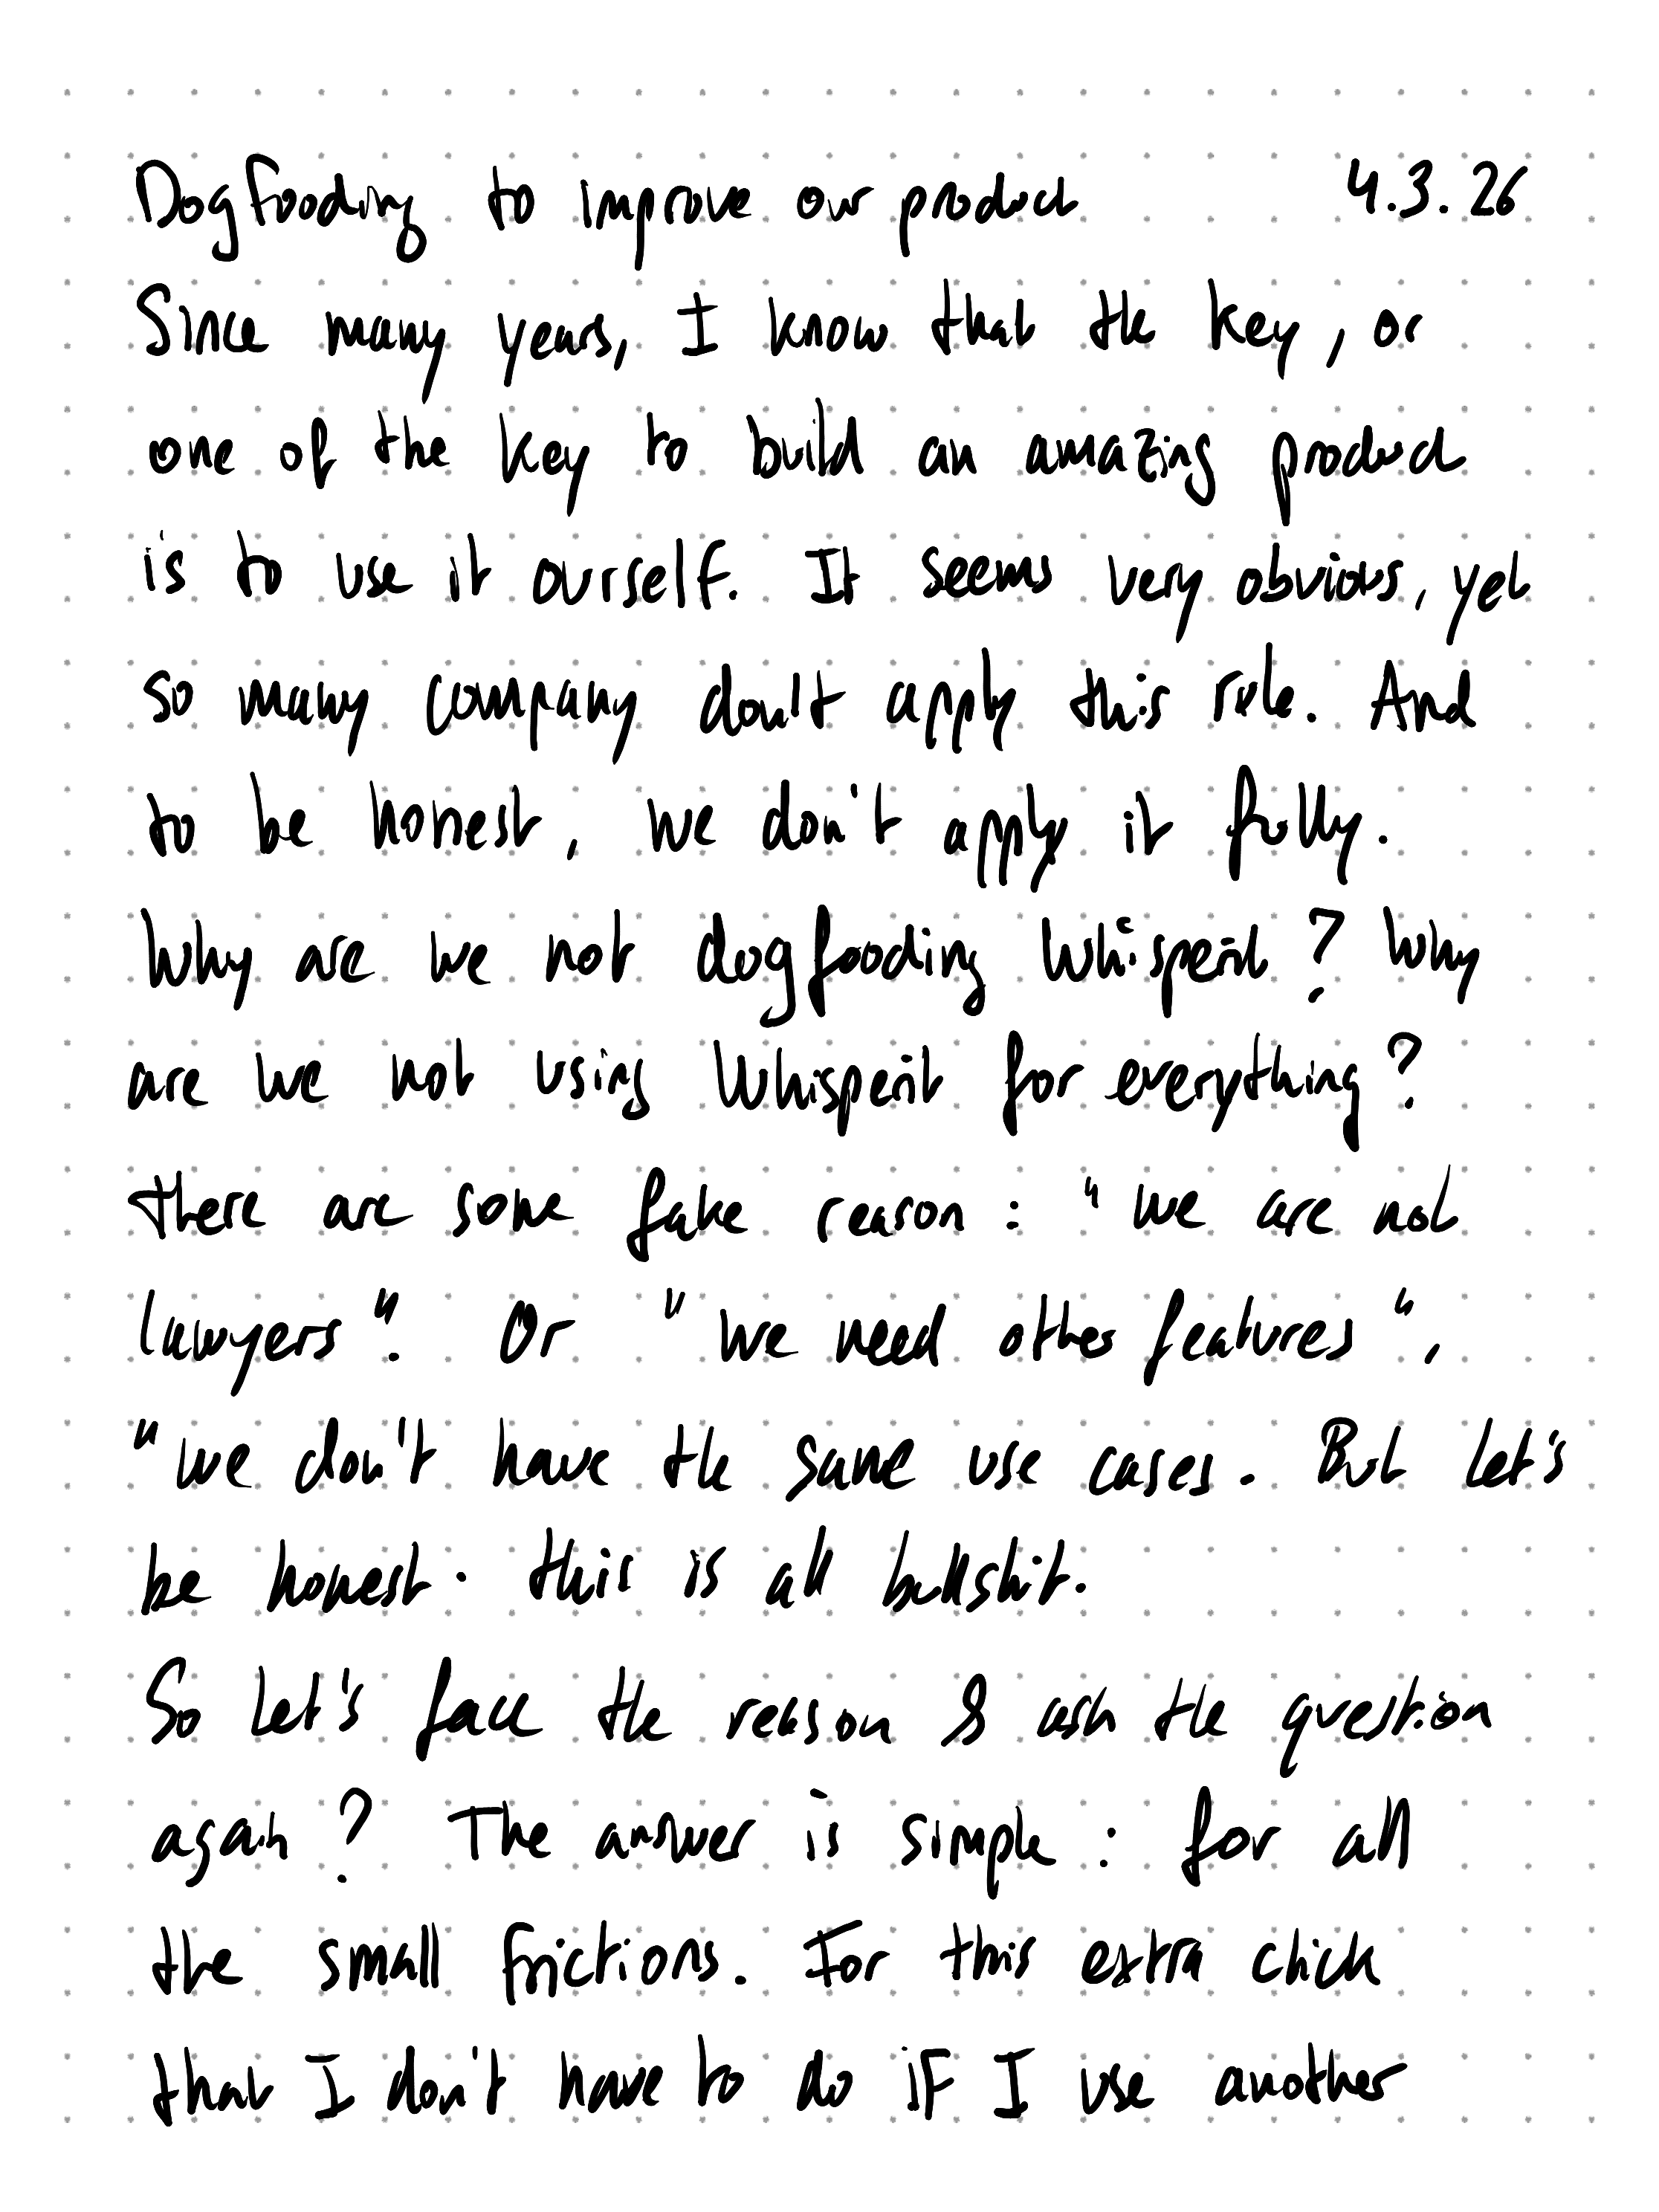 Dogfooding to improve our product 4.3.26
Since many years, I know that the key, or
one of the key to build an amazing product
is to use it ourself. It seems very obvious, yet
so many company don't apply this rule. And
to be honest, we don't apply it fully.
Why are we not dogfooding Whisperit? Why
are we not using Whisperit for everything?
there are some fake reason : "we are not
lawyers". Or "we need other features",
"we don't have the same use cases. But let's
be honest. this is all bullshit.
So let's face the reason & ask the question
again? The answer is simple : for all
the small frictions. For this extra click
that I don't have to do if I use another